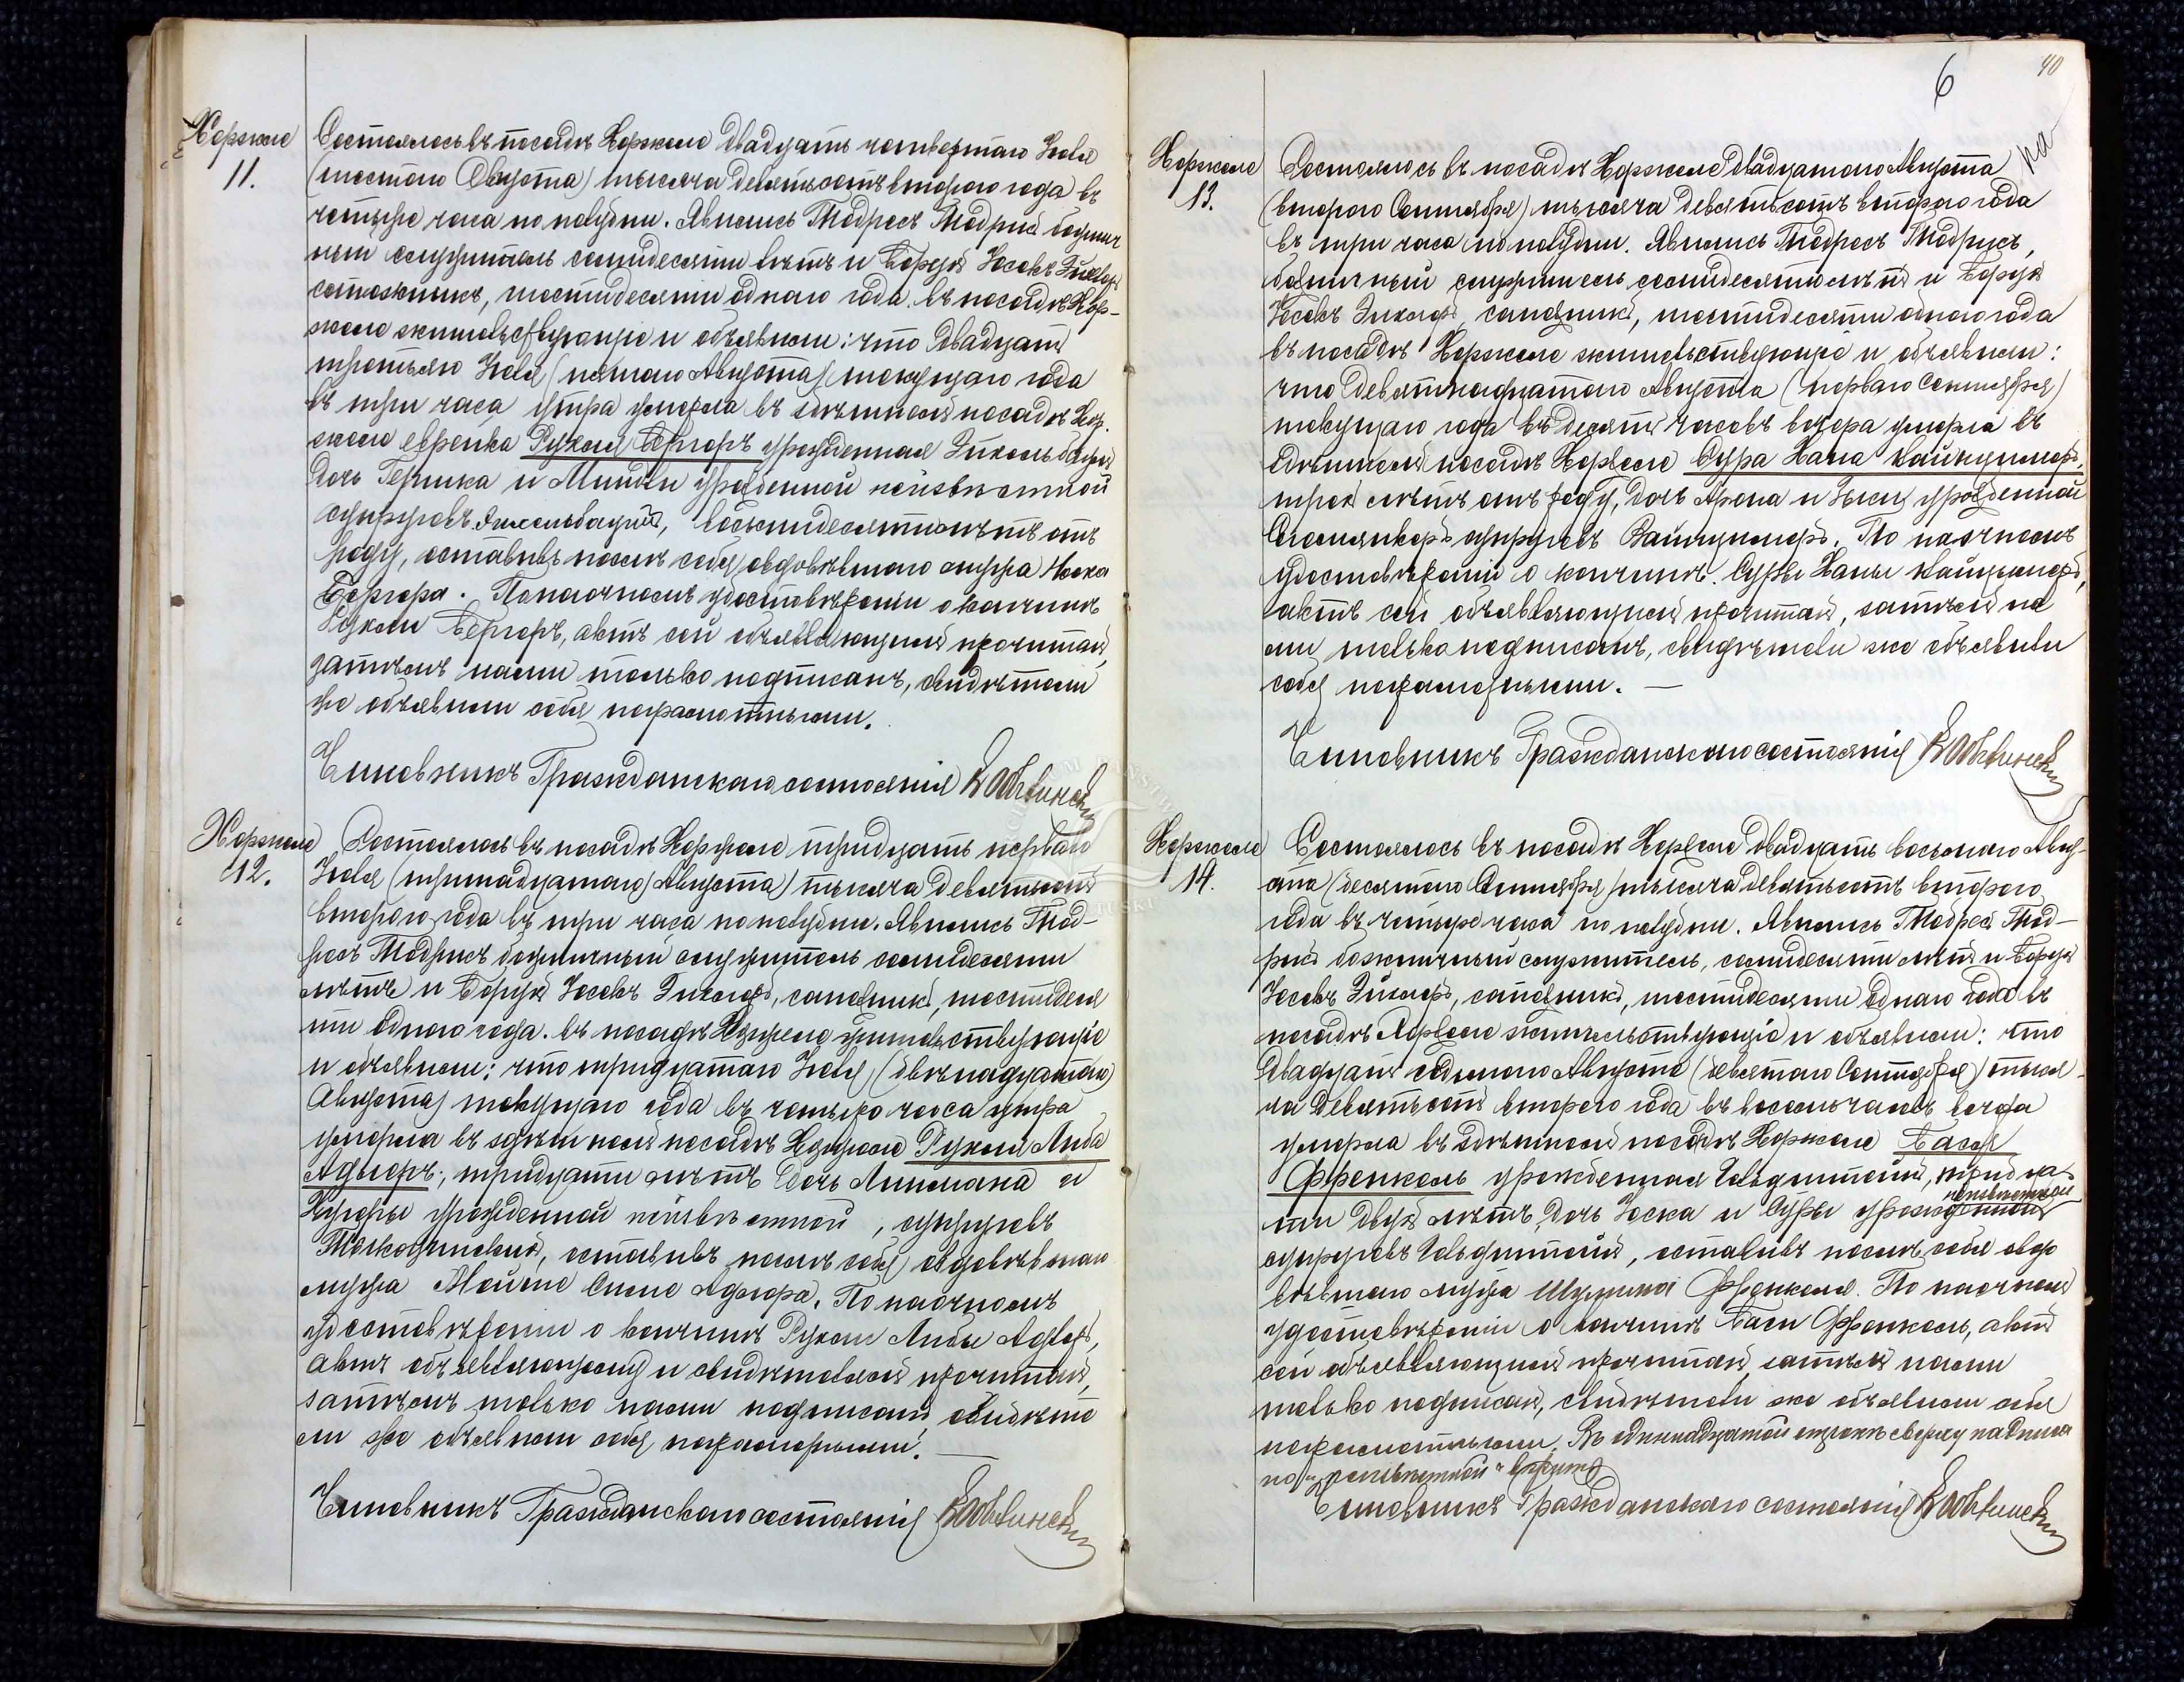 Хоржеле
11.
Состоялось въ посадѣ Хоржеле двадцать четвертаго Іюля
(шестого Августа) тысяча девятьсотъ второго года въ
четыре часа по полудни. Явились Тодресъ Тодрисъ божнич
ный служитель семидесяти лѣтъ и Борухъ Іосекъ
сапожникъ, шестидесяти одного года въ посадѣ Хор-
желе жительствующіе и объявили: что двадцать
третьяго Іюля (пятаго Августа) текущаго года
въ три часа утра умерла въ здѣшнемъ посадѣ Хор-
желе еврейка Рухля Бергеръ урожденная
дочь Гершка и Миндли урожденной неизвѣстной
супруговъ, восьмидесяти лѣтъ отъ
роду, оставивъ послѣ себя овдовѣвшаго мужа Іоска
Бергера. По наочномъ удостовѣреніи о кончинѣ
Рухли Бергеръ, актъ сей объявляющимъ прочитанъ,
затѣмъ нами только подписанъ, свидѣтели
же объявили себя неграмотными.
Чиновникъ Гражданскаго состоянія
Хоржеле
12.
Состоялось въ посадѣ Хоржеле тридцать перваго
Іюля (тринадцатаго Августа) тысяча девятьсотъ
второго года въ три часа по полудни. Явились Тод-
ресъ Тодрисъ божничный служитель семидесяти
лѣтъ и Борухъ Іосекъ сапожникъ, шестидеся
ти одного года въ посадѣ Хоржеле жительствующіе
и объявили: что тридцатаго Іюля (двѣнадцатаго
Августа) текущаго года въ четыре часа утра
умерла въ здѣшнемъ посадѣ Хоржеле Рухля Либа
Адлеръ, тридцати лѣтъ дочь Липмана и
урожденной неизвѣстной, супруговъ
оставивъ послѣ себя овдовѣвшаго
мужа Адлера. По наочномъ
удостовѣреніи о кончинѣ Рухли Либы Адлеръ,
актъ объявляющимъ и свидѣтелямъ прочитанъ,
затѣмъ только нами подписанъ, свидѣте
ли же объявили себя неграмотными.
Чиновникъ Гражданскаго состоянія
6
40
Хоржеле
13.
Состоялось въ посадѣ Хоржеле двадцатаго Августа
(второго Сентября) тысяча девятьсотъ второго года
въ три часа по полудни. Явились Тодресъ Тодрусъ,
божничный служитель семидесяти лѣтъ и Борухъ
Іосекъ сапожникъ, шестидесяти одного года
въ посадѣ Хоржеле жительствующіе и объявили:
что девятнадцатаго Августа (перваго Сентября)
текущаго года въ десять часовъ вечера умерла въ
здѣшнемъ посадѣ Хоржеле Сура Хана Вайнцимеръ,
трехъ лѣтъ отъ роду, дочь Арона и урожденной
супруговъ Вайнцимеръ. По наочномъ
удостовѣреніи о кончинѣ Суры Ханы Вайнцимеръ,
актъ сей объявляющимъ прочитанъ, затѣмъ на
ми только подписанъ, свидѣтели же объявили
себя неграмотными.
Чиновникъ Гражданскаго состоянія
Хоржеле
14.
Состоялось въ посадѣ Хоржеле двадцать восьмаго Авгу-
ста (десятаго Сентября) тысяча девятьсотъ второго
года въ четыре часа по полудни. Явились Тодресъ Тод-
рисъ божничный служитель, семидесяти лѣтъ и Борухъ
Іосекъ сапожникъ, шестидесяти одного года въ
посадѣ Хоржеле жительствующіе и объявили: что
двадцать седьмого Августа (девятаго Сентября) тыся-
ча девятьсотъ второго года въ восемь часовъ вечера
умерла въ здѣшнемъ посадѣ Хоржеле Бася
Френкель урожденная Гольдштейнъ, тридца-
неизвѣстной
ти двухъ лѣтъ, дочь Іоска и Суры урожденной
супруговъ Гольдштейнъ, оставивъ послѣ себя овдо
вѣвшаго мужа Шулима Френкеля. По наочномъ
удостовѣреніи о кончинѣ Баси Френкель, актъ
сей объявляющимъ прочитанъ, затѣмъ нами
только подписанъ, свидѣтели же объявили себя
неграмотными. Въ одинадцатой строкѣ сверху надписа
но „неизвѣстной“
Чиновникъ Гражданскаго состоянія